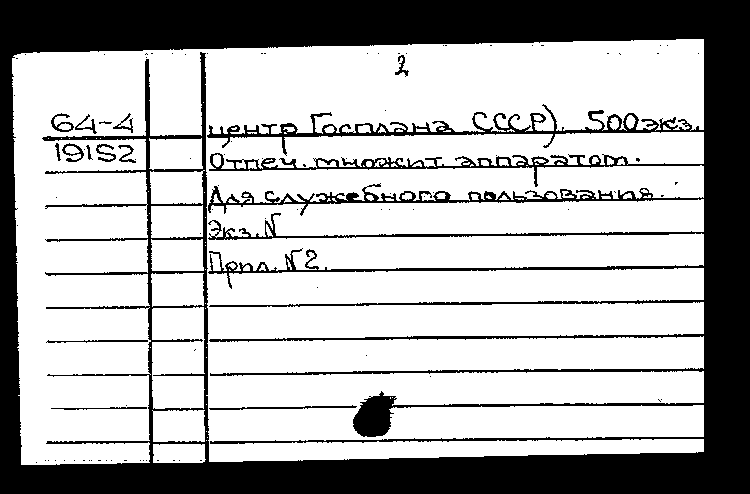 2
64-4 центр Госплана СССР). 500экз.
19152 Отпеч. множит аппаратом.
Для служебного пользования.
Экз. N
Прпл. N2.